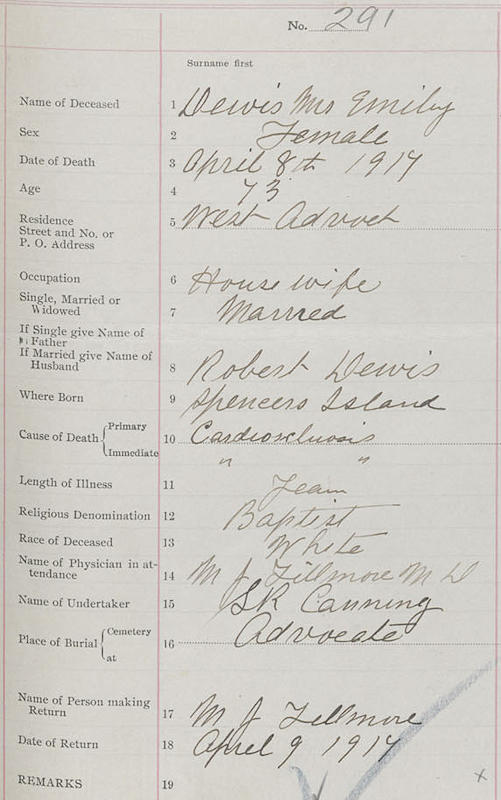 No. 291
Surname first
Name of Deceased 1 Dewis Mrs Emily
Sex 2 Female
Date of Death 3 April 8th 1917
Age 4 73
Residence
Street and No. or
P. O. Address 5 West Advoct
Occupation 6 House wife
Single, Married or
Widowed 7 Married
If Single give Name of
Father
If Married give Name of
Husband 8 Robert Dewis
Where Born 9 Spencers Island
Cause of Death Primary
Immediate 10 Cardiosclerosis
" "
Length of Illness 11
Religious Denomination 12 Baptist
Race of Deceased 13 White
Name of Physician in at-
tendance 14 M J Fillmore M D
Name of Undertaker 15 SR Canning
Place of Burial Cemetery
at 16 Advocate
Name of Person making
Return 17 M J Fillmore
Date of Return 18 April 9 1917
REMARKS 19
x